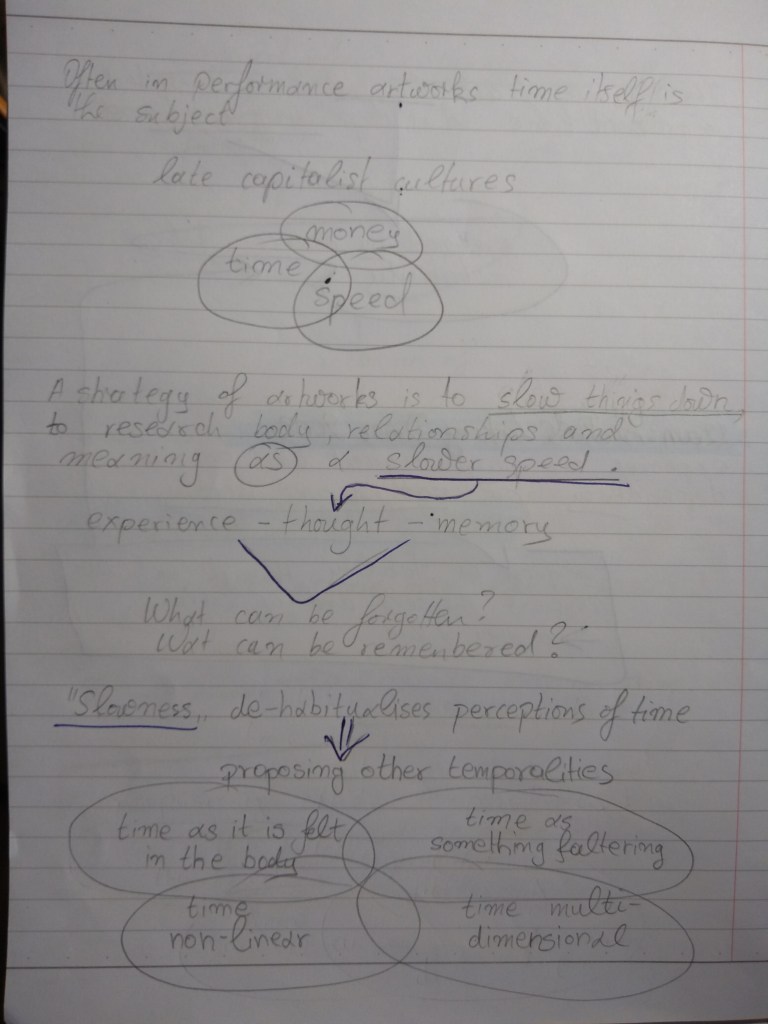 Often in performance artworks time itself is
the subject
late capitalist cultures
money
time
speed
A strategy of artworks is to slow things down,
to research body, relationships and
meaning as a slower speed.
experience - thought - memory
What can be forgotten?
Wat can be remembered?
"Slowness„ de-habitualises perceptions of time
proposing other temporalities
time as it is felt
in the body
time as
something faltering
time
non-linear
time multi-
dimensional